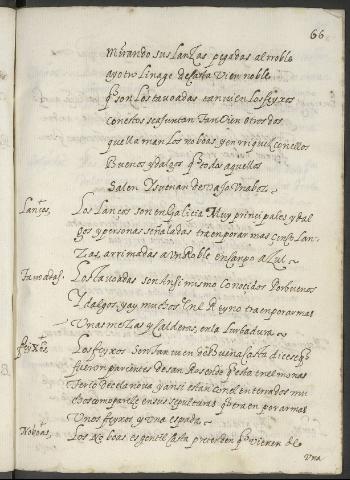 66
mirando sus lanzas pegadas al roble
ay otro linage de casta vien noble
q̃ son los tavoadas tanvien los feyxos
con estos se ajuntan tanvien otros dos
que llaman los noboas, y enrriquez con ellos
Buenos ydalgos q̃ todos aquellos
Salen y suenan de vajo una boz ~
Lanços, Los Lanços son en galicia Muy principales y dal
gos y personas señaladas traen por armas cinco lan-
zas, arrimadas a un Roble en canpo azul ~
Tavoadas. Los Tavoadas son Ansi mismo conocidos por buenos
Ydalgos, y ay muchos en el Reyno traen por armas
Unas mezlas y Calderos, en la
feyxos. Los feyxos son tanvien de buena casta dicese q̃
fueron parientes de san Rosendo q̃ esta en el monas
terio de celanova, y ansi estan con el enterrados mu
chos como parece en sus sepulturas q̃ traen por armas
Unos feyxos y una espada ~
Noboas, Los Noboas es gentil casta pretenden q̃ vienen de
una